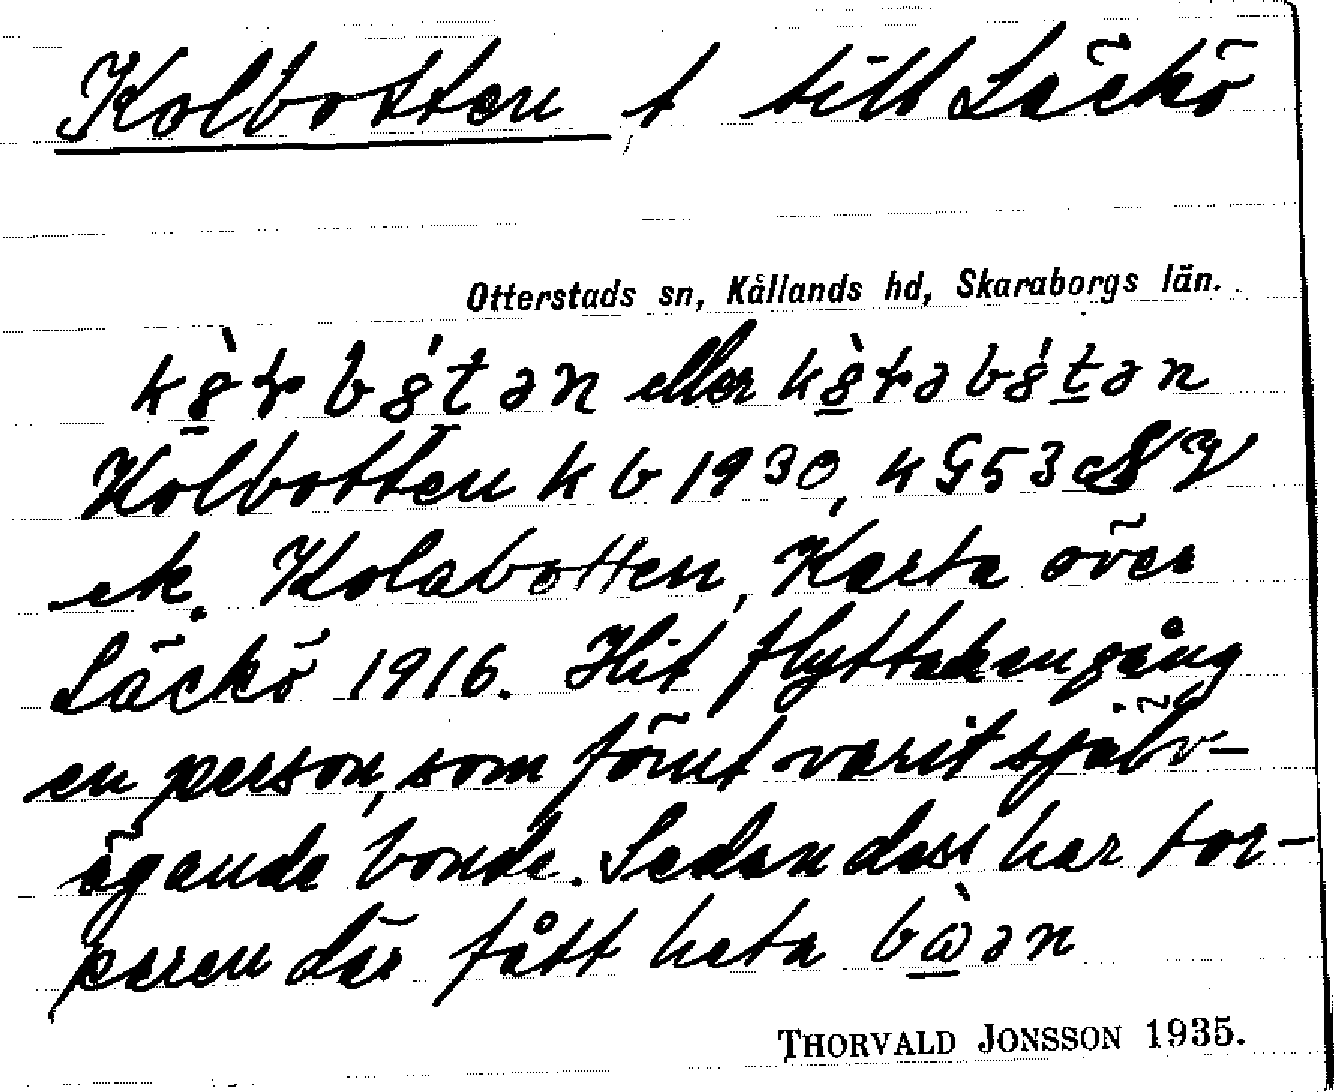 Kolbotten t till Läckö
Otterstads sn, Kållands hd, Skaraborgs län.
eller
Kolbotten kb 1930, k G53
ek. Kolabotten, Karta över
Läckö 1916. Hit flyttade en gång
en person, som förut varit själv-
ägande bonde. Sedan dess har tor-
paren där fått heta
THORVALD JONSSON 1935.